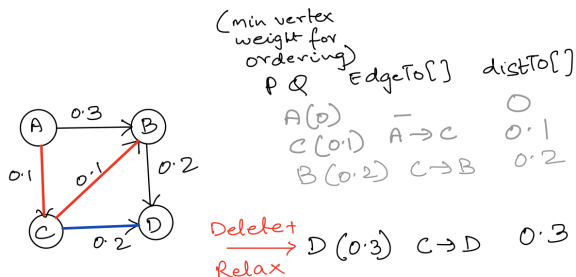 (min vertex
weight for
ordering)
PQ EdgeTo[] distTo[]
A(0) – 0
C(0.1) A→C 0.1
B(0.2) C→B 0.2
Delete+
Relax
D(0.3) C→D 0.3
A 0.3 B
0.1 0.1 0.2
C 0.2 D